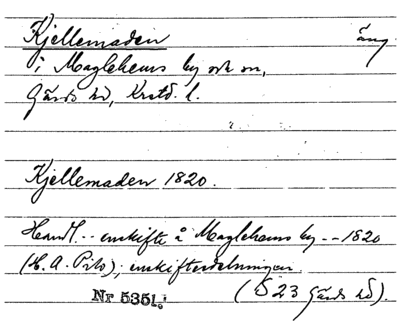 Kjellemaden äng.
i Maglehems by och sn,
Gärds hd, Krstd. l.
Kjellemaden 1820.
Handl. -- enskifte å Maglehems by -- 1820
(H. A. Pihs), enskiftesdelningen.
Nr 5351. (S 23 Gärds hd).